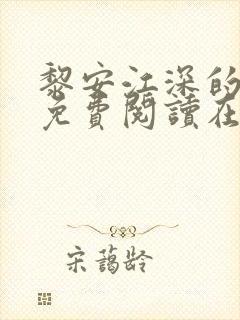 黎安江深的
免費閱讀在
宋蘊齡